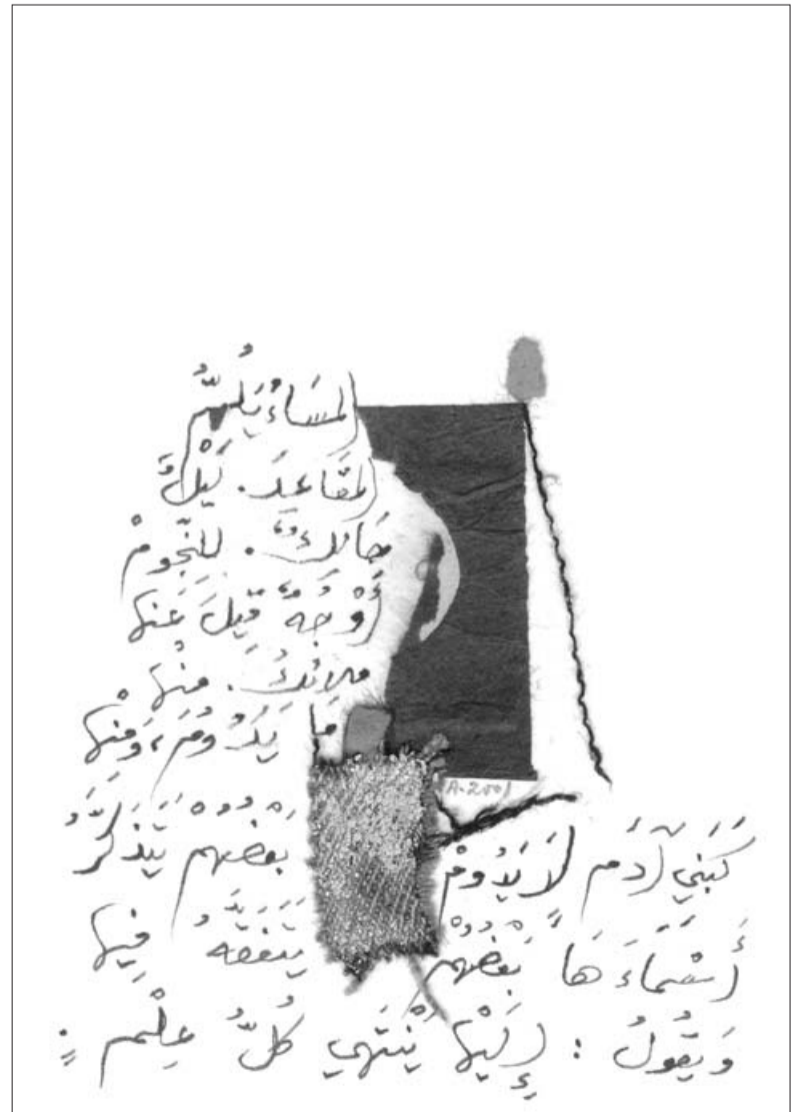 المَسَاءُ يَلُمُّ
المَقَاعِدَ. لَيْلٌ
حَالِكٌ. للنّجومْ
أَوْجُهٌ قِيلَ عَنها
ملائكُ. منْها
مَا يَدُومُ، وَمِنْها
A.2001
كَبَنِي آدَم لاَ يَدُومْ بَعْضُهُمْ يَتَذَكَّرُ
أَسْمَاءَهَا بَعْضُهُمْ يَتَفَقَّهُ فِيها
وَيَقُولُ : إِلَيْها يَنْتَهي كُلُّ عِلْم :